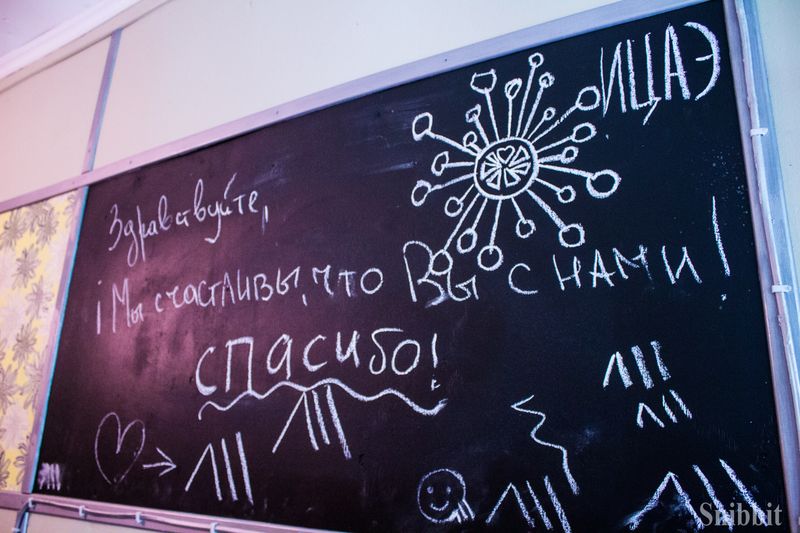 ИЦАЭ
Здравствуйте,
¡Мы счастливы, что Вы с нами!
спасибо!
Snibbit